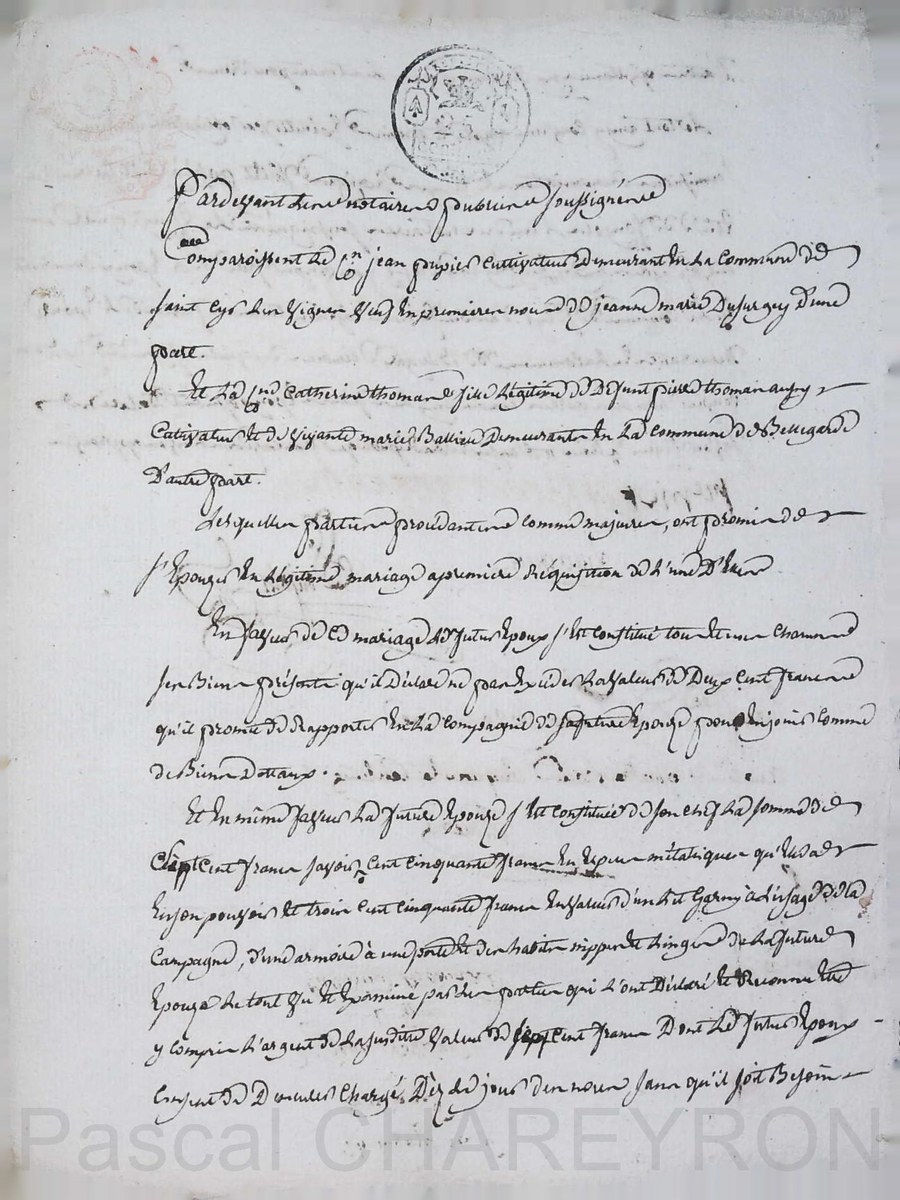 25
Pardevant Les notaires publics soussignés
Comparoissent Le Cn jean pupier Cultivateur Demeurant En La Commune de
saint Cyr Les Vignes Veuf En premieres noces de jeanne marie Dusurgey D'une
part.
Et La Cne Catherine thomas fille Légitime de Defunt pierre thomas
Cultivateur Et de Vivante marie Demeurante En La Commune de Bellegarde
D'autre part.
Lesquelles parties procédantes comme majeures, ont promis de
s'Epouser En Légitime mariage a premiere Réquisition de L'une D'Elles
En faveur de Ce mariage Le futur Epoux s'Est Constitué tous Et uns Chacuns
ses Biens présents qu'il Déclare ne pas Exceder La Valeur de Deux Cent francs
qu'il promet de Rapporter En La Compagnie de sa future Epouse pour En jouir Comme
de Biens Dotaux.
Et En même faveur La future Epouse s'Est Constituée de son Chef La somme de
sept Cent francs savoir, Cent Cinquante francs En Espèces métaliques qu'Elle a
En son pouvoir Et trois Cent Cinquante francs En Valeur d'un Lit Garny à L'usage de la
Campagne, d'une armoire à une porte Et des habits nippes Et Linges de La future
Epouse Le tout Vu Et Examiné par Les parties qui L'ont Déclaré Et Reconnu Etre
y Compris L'argent de La susdite Valeur de sept Cent francs Dont Le futur Epoux
Consent de Demeurer Chargé Dès Le jour des noces sans qu'il soit Besoin
Pascal CHAREYRON